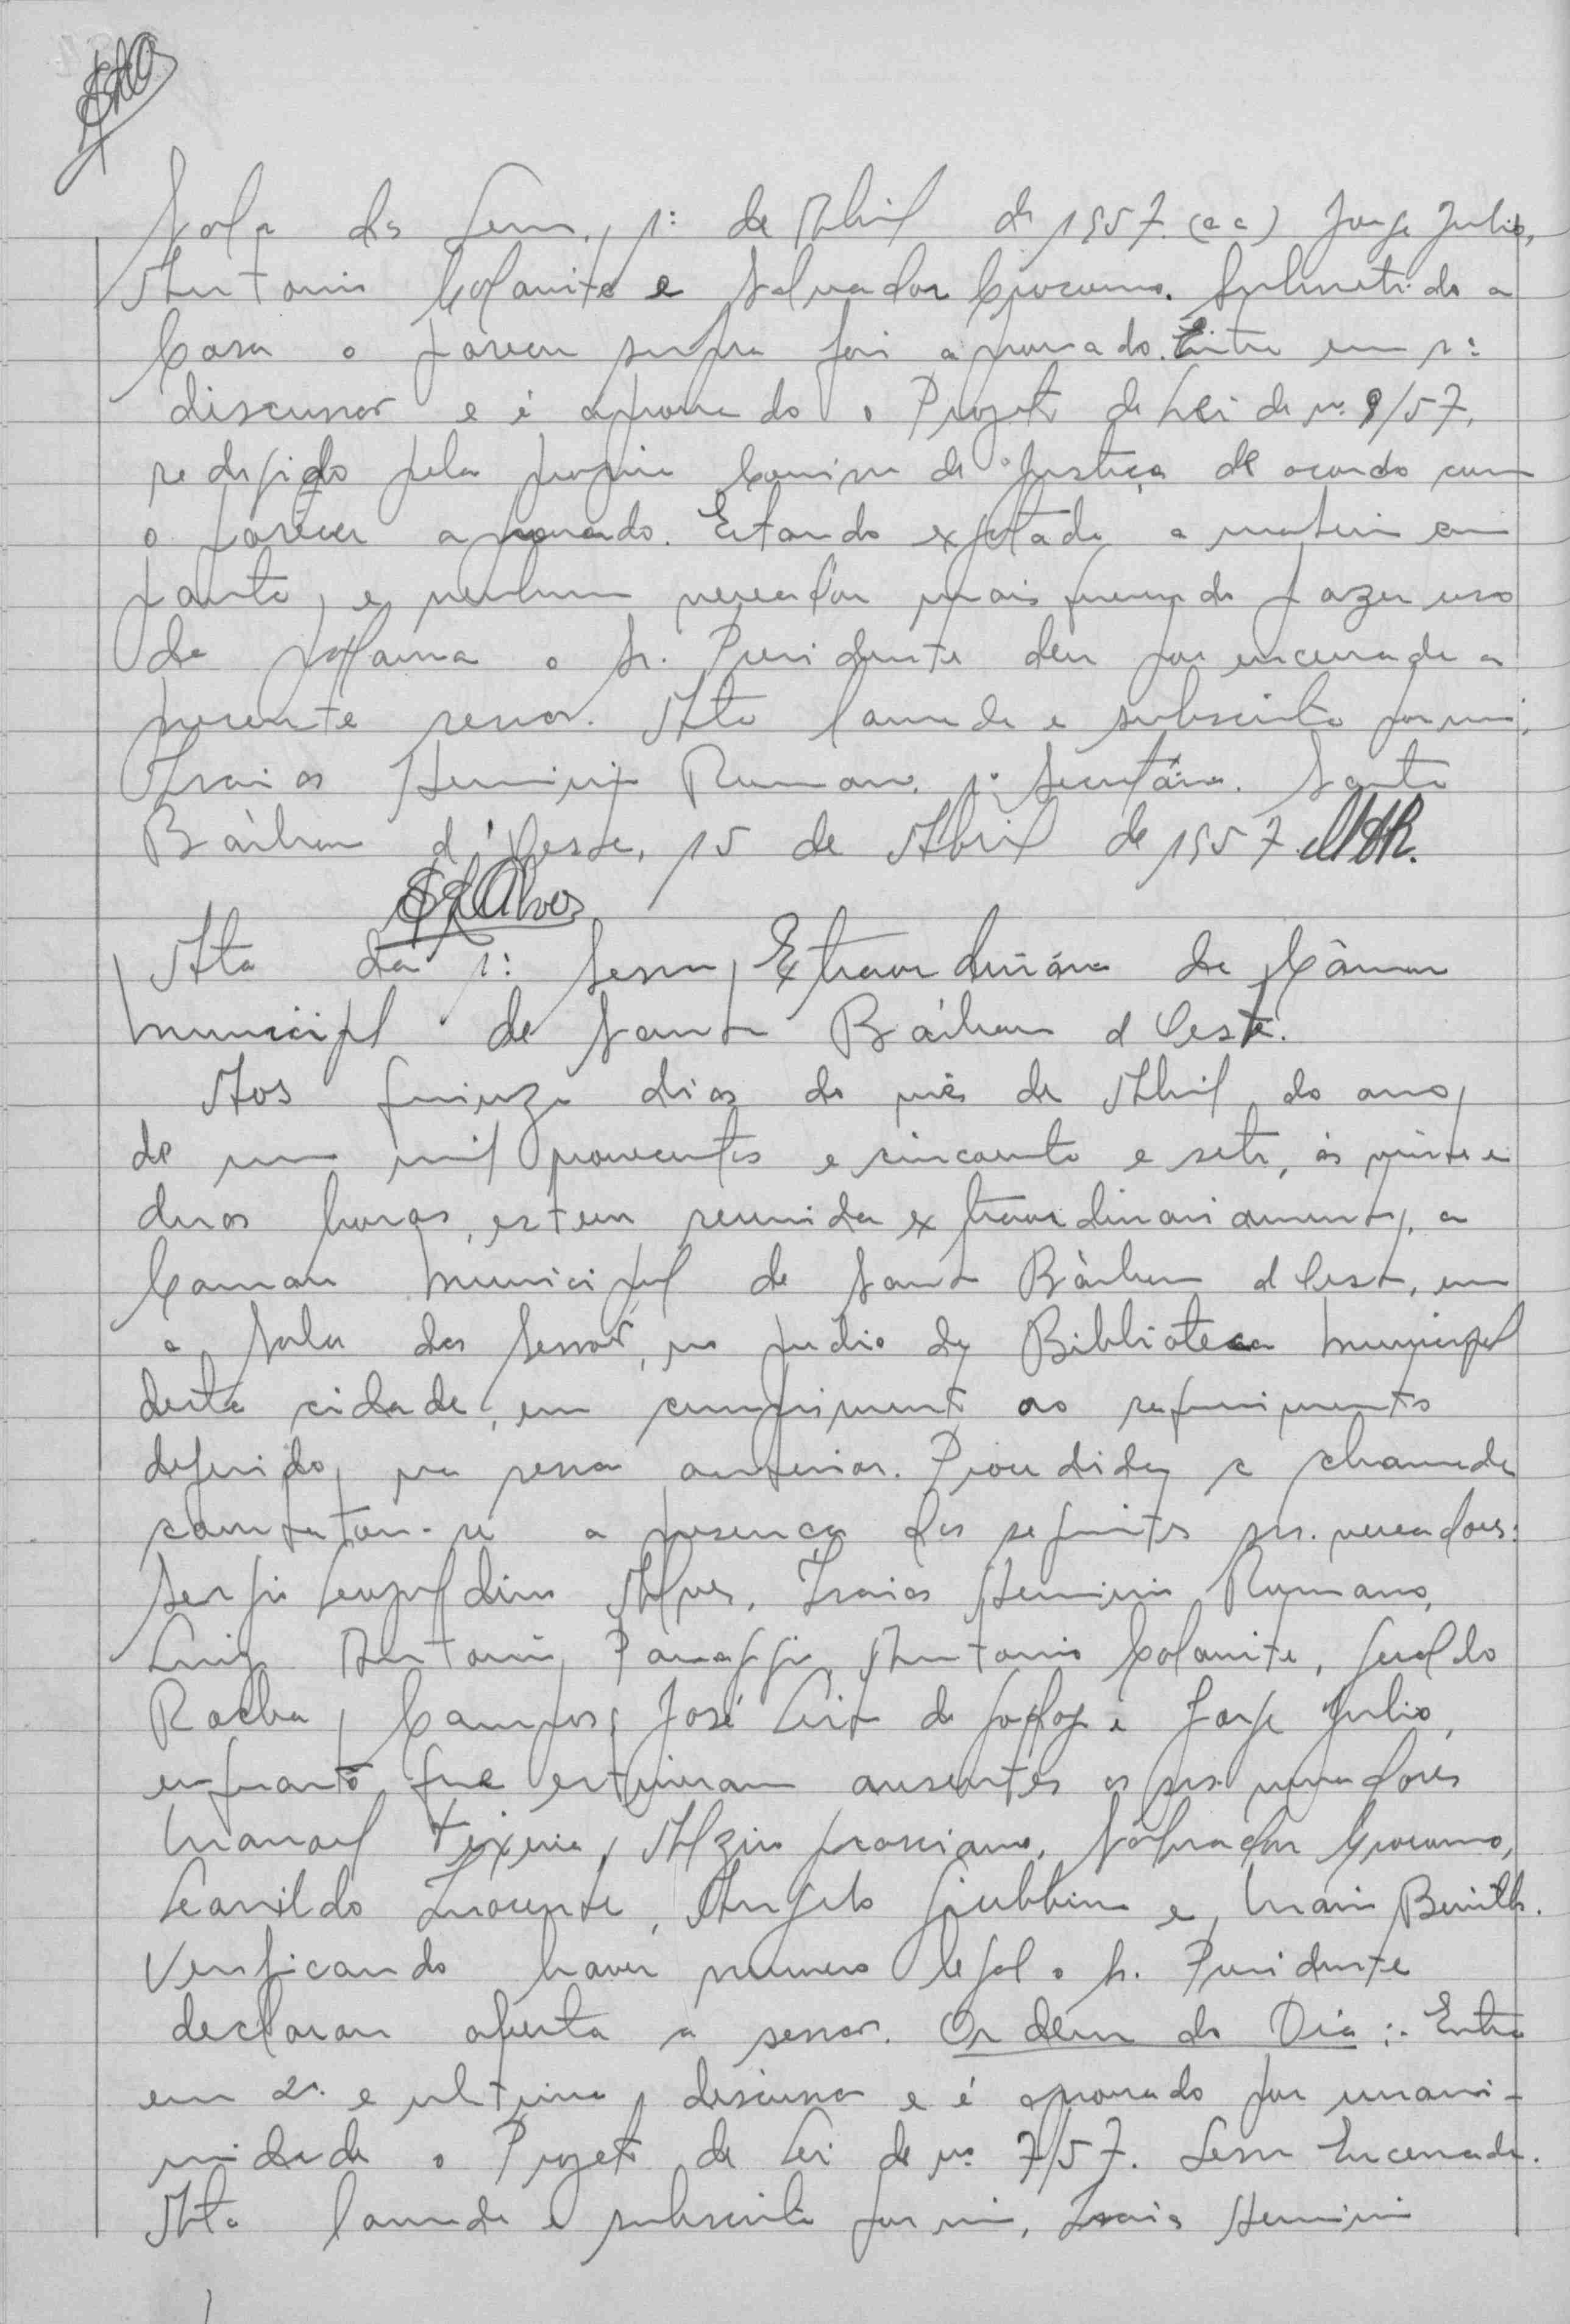 Sala das Sessões, 1º de Abril de 1957. (aa) Jorge Julio,
Antonio Colamite e Salvador Crocomo. Submetido a
Casa o parecer supra foi aprovado. Entra em 1ª
discussão e é aprovado o Projeto de Lei de nº 9/57,
redigido pela propria Comissão de Justiça de acordo com
o parecer aprovado. Estando exgotada a materia em
pauta, e nenhum vereador mais querendo fazer uso
da palavra o Sr. Presidente deu por encerrada a
presente sessão. Ata lavrada e subscrita por mim,
Isaias Herminio Romano, 1º Secretário. Santa
Bárbara d'Oeste, 15 de Abril de 1957.
SLAlves
Ata da 1ª Sessão Extraordinária da Câmara
Municipal de Santa Bárbara d Oeste.
Aos quinze dias do mês de Abril do ano
de um mil novecentos e cincoenta e sete, ás vinte e
duas horas, esteve reunida extraordinariamente, a
Camara Municipal de Santa Bárbara d Oeste, em
a Sala das Sessões, no predio da Biblioteca Municipal
desta cidade, em cumprimento ao requerimento
deferido na sessão anterior. Procedida a chamada
constatou-se a presença dos seguintes srs. vereadores:
Sergio Leopoldino Alves, Isaias Herminio Romano,
Luiz Antonio Panaggio, Antonio Colamite, Geraldo
Rocha Campos, José Cirto de e Jorge Julio,
enquanto que estiveram ausentes os srs. vereadores
Manoel Teixeira, Alziro, Salvador Crocomo,
Leonildo Inocente, Angelo Giubbina e Mario
Verificando haver numero legal o Sr. Presidente
declarou aberta a sessão. Ordem do Dia :- Entra
em 2ª e ultima discussão e é aprovado por unani-
midade o Projeto de Lei de nº 7/57. Sessão Encerrada.
Ata lavrada e subscrita por mim, Isaias Herminio